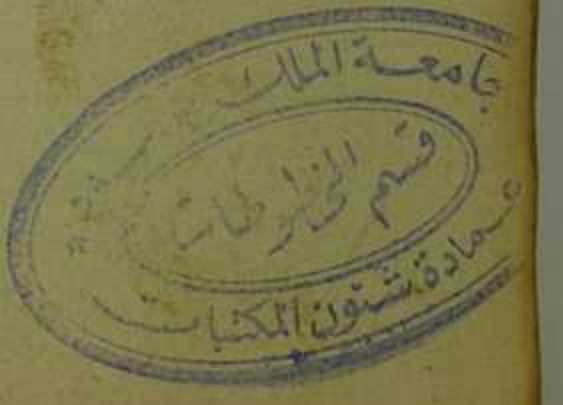 جامعة الملك
قسم المخطوطات
عمادة شئون المكتبات